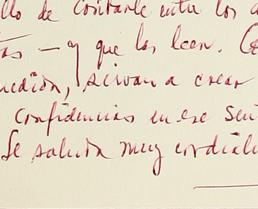 llo de contarle entre los a
tas — y que las leen. Ce
medida, sirvan a crear
confidencias en ese sen
Le saluda muy cordial